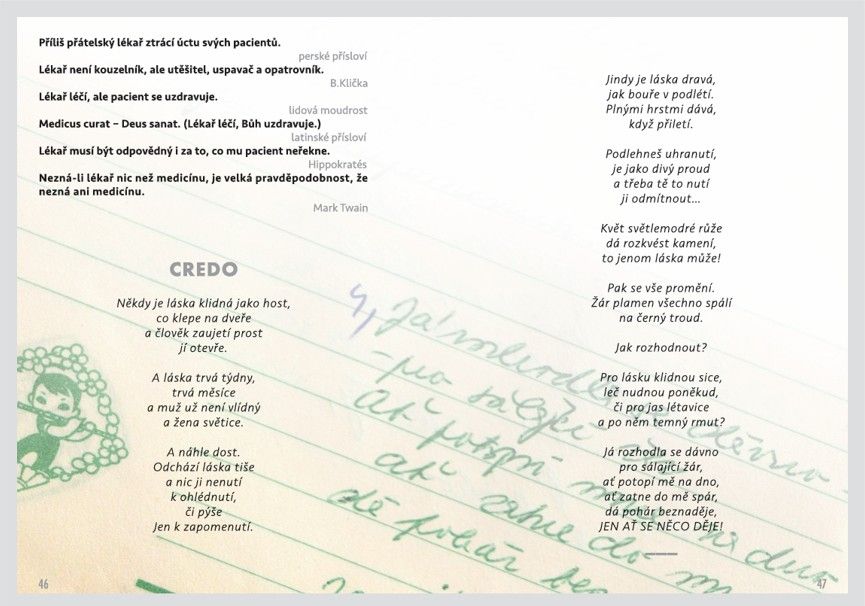 Příliš přátelský lékař ztrácí úctu svých pacientů.
perské přísloví
Lékař není kouzelník, ale utěšitel, uspavač a opatrovník.
B.Klička
Lékař léčí, ale pacient se uzdravuje.
lidová moudrost
Medicus curat – Deus sanat. (Lékař léčí, Bůh uzdravuje.)
latinské přísloví
Lékař musí být odpovědný i za to, co mu pacient neřekne.
Hippokratés
Nezná-li lékař nic než medicínu, je velká pravděpodobnost, že
nezná ani medicínu.
Mark Twain
CREDO
Někdy je láska klidná jako host,
co klepe na dveře
a člověk zaujetí prost
jí otevře.
A láska trvá týdny,
trvá měsíce
a muž už není vlídný
a žena světice.
A náhle dost.
Odchází láska tiše
a nic ji nenutí
k ohlédnutí,
či pýše
Jen k zapomenutí.
46
Jindy je láska dravá,
jak bouře v podlétí.
Plnými hrstmi dává,
když přiletí.
Podlehneš uhranutí,
je jako divý proud
a třeba tě to nutí
ji odmítnout...
Květ světlemodré růže
dá rozkvést kamení,
to jenom láska může!
Pak se vše promění.
Žár plamen všechno spálí
na černý troud.
Jak rozhodnout?
Pro lásku klidnou sice,
leč nudnou poněkud,
či pro jas létavice
a po něm temný rmut?
Já rozhodla se dávno
pro sálající žár,
ať potopí mě na dno,
ať zatne do mě spár,
dá pohár beznaděje,
JEN AŤ SE NĚCO DĚJE!
47